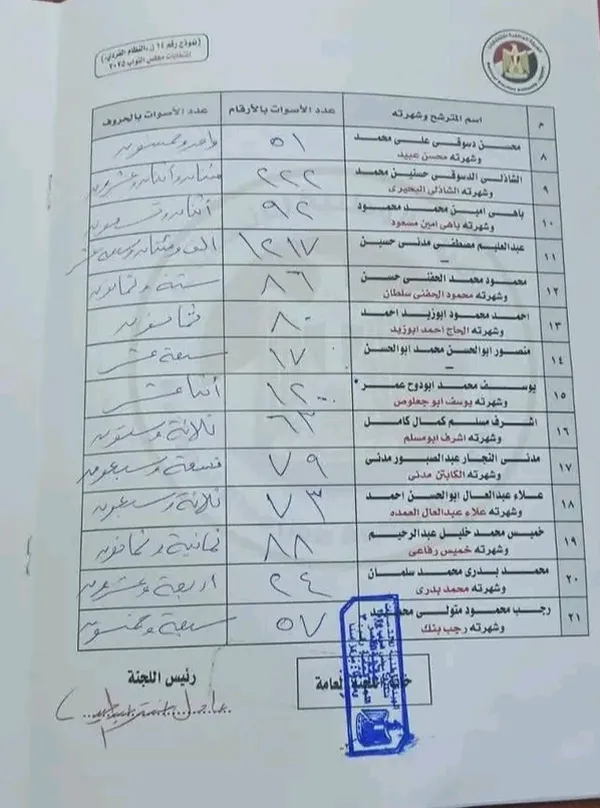 (نموذج رقم ١٤ ن.ب النظام الفردى)
انتخابات مجلس النواب ٢٠٢٥
م اسم المترشح وشهرته عدد الأصوات بالأرقام عدد الأصوات بالحروف
٨ محسن دسوقى على محمد ٥١ واحد وخمسون
وشهرته محسن عبيد
٩ الشاذلى الدسوقى حسنين محمد ٢٢٢ مئتان واثنان وعشرون
وشهرته الشاذلى البحيرى
١٠ باهى امين محمد محمود ٩٢ أثنان وتسعون
وشهرته باهى امين مسعود
١١ عبدالعليم مصطفى مدنى حسين ١٢١٧ الف ومئتان وسبعة عشر
–
١٢ محمود محمد الحفنى حسن ٨٦ ستة وثمانون
وشهرته محمود الحفنى سلطان
١٣ احمد محمود ابوزيد احمد ٨٠ ثمانون
وشهرته الحاج احمد ابوزيد
١٤ منصور ابوالحسن محمد ابوالحسن ١٧ سبعة عشر
–
١٥ يوسف محمد ابودوح عمر ١٢ أثنا عشر
وشهرته يوسف ابو جعلوص
١٦ اشرف مسلم كمال كامل ٦٣ ثلاثة وستون
وشهرته اشرف ابومسلم
١٧ مدنى النجار عبدالصبور مدنى ٧٩ تسعة وسبعون
وشهرته الكابتن مدنى
١٨ علاء عبدالعال ابوالحسن احمد ٧٣ ثلاثة وسبعون
وشهرته علاء عبدالعال العمده
١٩ خميس محمد خليل عبدالرحيم ٨٨ ثمانية وثمانون
وشهرته خميس رفاعى
٢٠ محمد بدرى محمد سلمان ٢٤ اربعة وعشرون
وشهرته محمد بدرى
٢١ رجب محمود متولى ٥٧ سبعة وخمسون
وشهرته رجب بنك
رئيس اللجنة
العامة